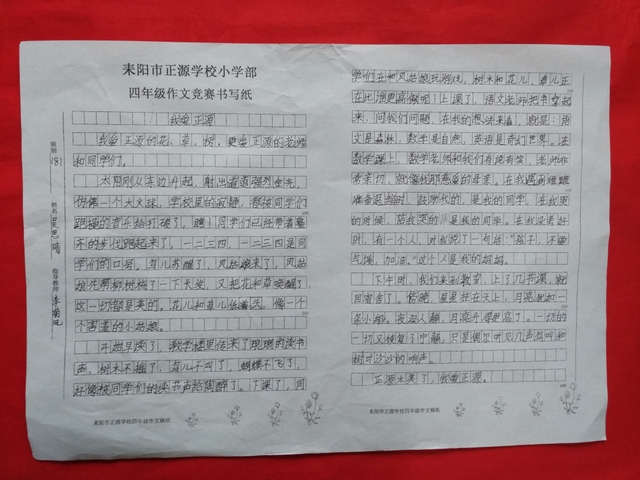 耒阳市正源学校小学部
四年级作文竞赛书写纸
班别 181
姓名
指导教师 李菊凤
我爱正源
我爱正源的花、草、树，更爱正源的老师
和同学们。
太阳刚从东边升起，射出道道强烈金光，
仿佛一个大火球。学校里的寂静，都被同学们
跑操的音乐给打破了，瞧！同学们已经带着整
齐的步伐跑起来了，一二三四，一二三四是同
学们的口号，鸟儿苏醒了，风姑娘来了，风姑
娘先帮柳树梳了一下长发，又把花和草唤醒了
这一切都是美的。花儿和草儿低着头，像一个
个害羞的小姑娘。
开始早读了，教学楼里传来了琅琅的读书
声，树木不摇了，鸟儿不叫了，蝴蝶不飞了，
好像被同学们的读书声给陶醉了。下课了，同
耒阳市正源学校四年级作文稿纸
学们在和风姑娘玩游戏，树木和花儿、草儿正
在比谁更高傲呢！上课了，语文老师把书拿起
来，问我们问题，在我的想法来看，就是：语
文是森林，数学是自然，英语是奇幻世界。在
数学课上，数学老师和我们有说有笑，老师非
常亲切，就像我那慈爱的母亲。在我遇到难题
准备退缩时，鼓学我的，是我的同学，在我哭
的时候，陪我哭的是我的同学。在我没考好
时，有一个人，对我说了一句话："孩子，不要
气馁，加油。"这个人是我的妈妈。
下午时，我们来到教室，上了几节课，就
回宿舍了。傍晚，星星挂在天上，月亮犹如一
条小船。夜深人静，月亮升得更高了。一切的
一切又恢复了宁静，只是偶尔听见几声蛙叫和
树叶沙沙的响声。
正源太美了，我爱正源。
耒阳市正源学校四年级作文稿纸